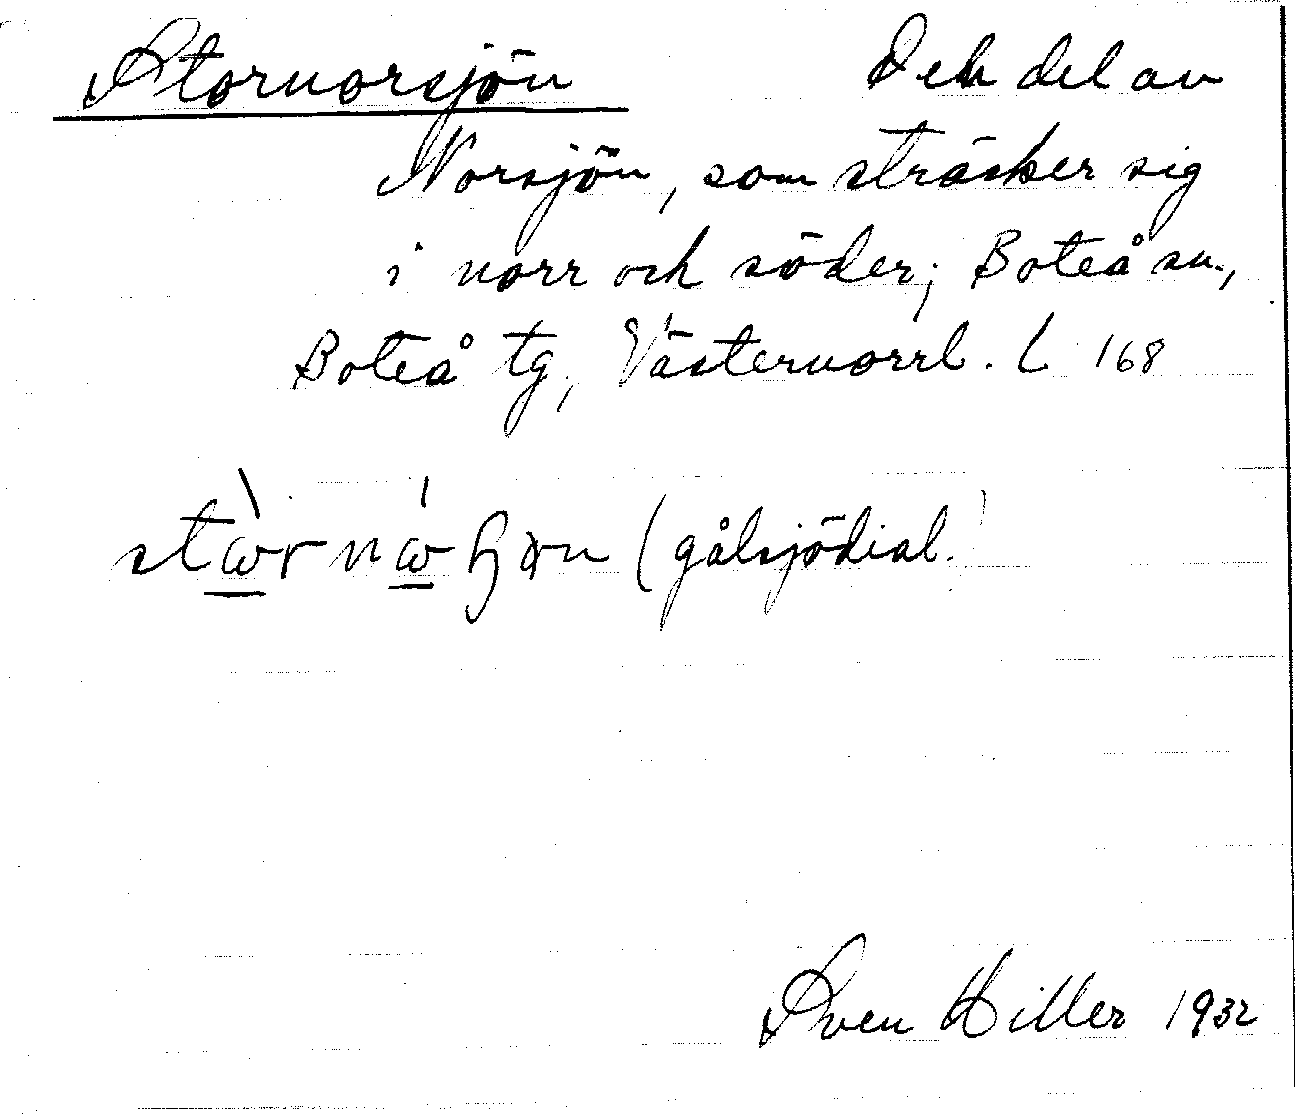 Stornorsjön Den del av
Norsjön, som sträcker sig
i norr och söder; Boteå sn.,
Boteå tg, Västernorrl. L 168
(gålsjödial.)
Sven Hiller 1932